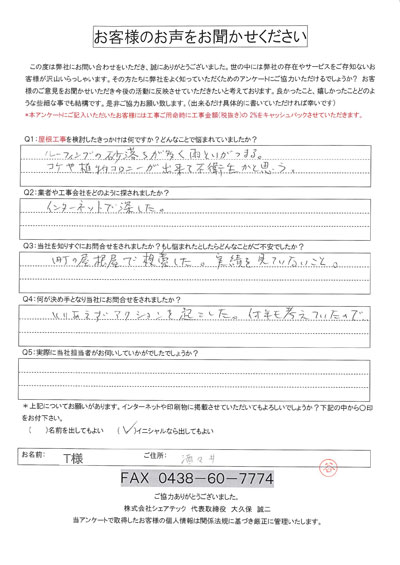 お客様のお声をお聞かせください
この度は弊社にお問い合わせをいただき、誠にありがとうございました。世の中には弊社の存在やサービスをご存知ないお
客様が沢山いらっしゃいます。その方たちに弊社をよく知っていただくためのアンケートにご協力いただけるでしょうか？ お客
様のご意見をお聞かせいただき今後の活動に反映させていただきたいと考えております。良かったこと、嬉しかったことどのよ
うな些細な事でも結構です。是非ご協力お願い致します。（出来るだけ具体的に書いていただければ幸いです）
*本アンケートにご記入いただいたお客様には工事ご用命時に工事金額（税抜き）の2%をキャッシュバックさせていただきます。
Q1：屋根工事を検討したきっかけは何ですか？どんなことで悩まれていましたか？
ルーフィングの砂落ちが多く雨といがつまる。
コケや植物コロニーが出来て不衛生かと思う。
Q2：業者や工事会社をどのように探されましたか？
インターネットで探した。
Q3：当社を知りすぐにお問合せをされましたか？もし悩まれたとしたらどんなことがご不安でしたか？
町の屋根屋で検索した。実績を見ていないこと。
Q4：何が決め手となり当社にお問合せをされましたか？
とりあえずアクションを起こした。何年も考えていたので
Q5：実際に当社担当者がお伺いしていかがでしたでしょうか？
＊上記についてお願いがあります。インターネットや印刷物に掲載させていただいてもよろしいでしょうか？下記の中から○印
をお付下さい。
（　）名前を出してもよい　（✓）イニシャルなら出してもよい
お名前： T様　ご住所：
FAX 0438-60-7774
ご協力ありがとうございました。
株式会社シェアテック 代表取締役 大久保 誠二
当アンケートで取得したお客様の個人情報は関係法規に基づき厳正に管理いたします。